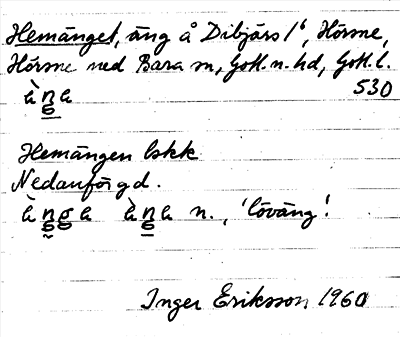 Hemänget, äng å Dibjärs 1⁶, Hörsne,
Hörsne med Bara sn, Gotl. n. hd, Gotl. l.
530
Hemängen bskk
Nedanför gd.
n., 'löväng'.
Inger Eriksson 1960